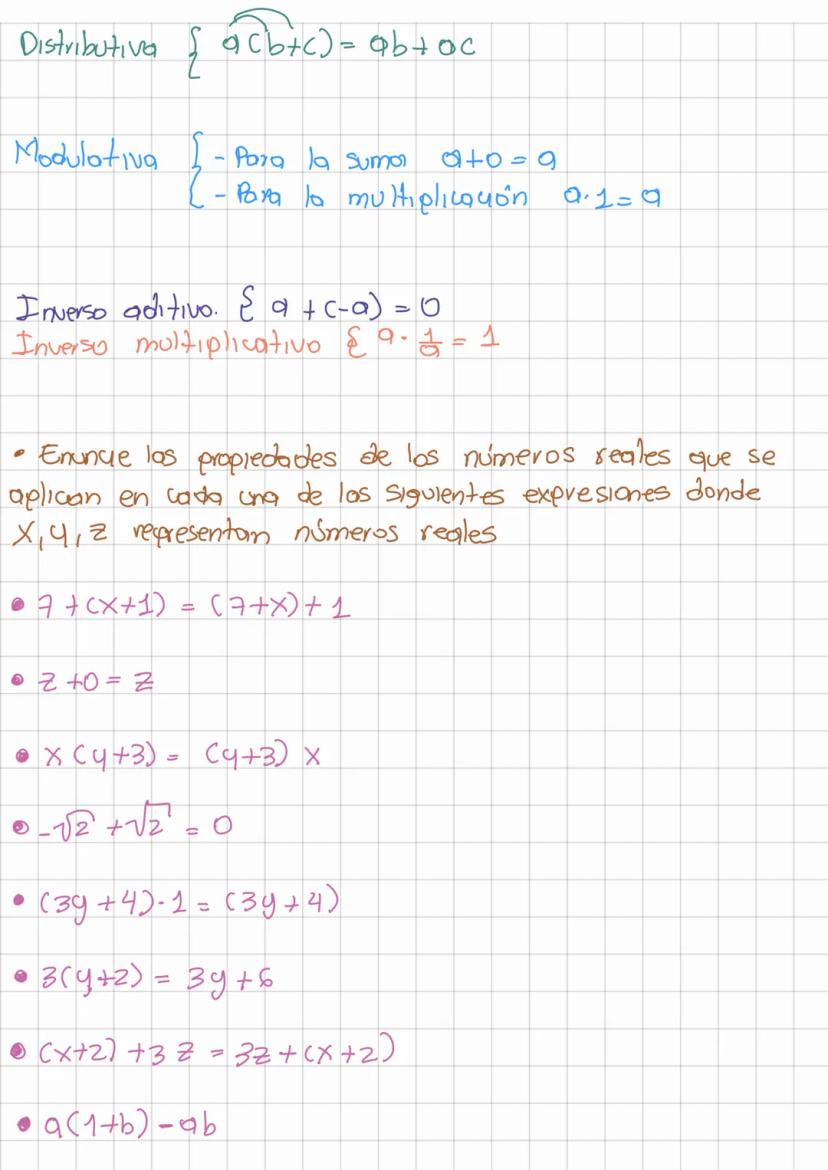 Distributiva { a(b+c) = ab + ac
Modulativa { - Para la suma a+0 = a
- Para la multiplicación a·1 = a
Inverso aditivo. { a + (-a) = 0
Inverso multiplicativo { a · 1/a = 1
• Enuncie las propiedades de los números reales que se
aplican en cada una de las siguientes expresiones donde
X, y, z representan números reales
• 7 + (x+1) = (7+x) + 1
• z + 0 = z
• x (y+3) = (y+3) x
• -√2 + √2 = 0
• (3y + 4)·1 = (3y + 4)
• 3(y+2) = 3y + 6
• (x+2) + 3z = 3z + (x+2)
• a(1+b) - ab